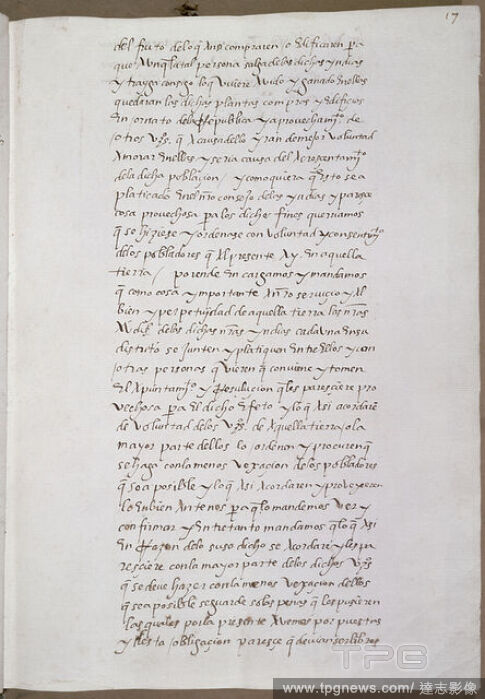 17
del fruto delo q̃ Ansi compraren / o edificaren pa
que Aunq̃ la tal persona salga delas dichas yndias
y trayga consigo loq̃ tuviere Avido y ganado enellas
quedaran las dichas plantas compras y edificios
En ornato dela Republica y aprovechamj.º de
otros vz.ºs q̃ A causa dello yran de mejor voluntad
A morar enellas y seria causa del Acrescentamj.º
dela dicha poblacion / y como quiera q̃ esto sea
platicado enel nr̃o consejo delas yndias y paresce
cosa provechosa para los dichos fines querriamos
q̃ se hiziese y ordenase con voluntad y consentimj.º
delos pobladores q̃ Al presente Ay en aquella
tierra / por ende En cargamos y mandamos
q̃ como cosa ymportante A nr̃o servicio y Al
bien y perpetuydad de aquella tierra las nr̃as
Audiẽ. delas dichas nr̃as yndias cada una ensu
destrito se junten y platiquen entre ellos y con
otras personas q̃ vieren q̃ conviene y tomen
El Apuntamj.º y Resulucion q̃ les paresciere pro
vechosa para El dicho Efeto y loq̃ Asi acordarẽ
de voluntad delos vz.ºs de Aquella tierra / o la
mayor parte dellos lo / ordenen y procuren q̃
se haga con la menos vexacion delos pobladores
q̃ sea posible y lo q̃ Asi Acordaren y proveyeren
lo enbien Ante nos para q̃ lo mandemos ver y
confirmar y Entretanto mandamos q̃ lo q̃ Asi
En Razon delo suso dicho se Acordare y les pa
resciere con la mayor parte delos dichos vz.ºs
q̃ se deve hazer con la menos vexacion dellos
q̃ sea posible se guarde solas penas q̃ les pusieren
las quales por la presente Avemos por puestas
y / esta / obligacion paresce q̃ devian ser libres
TPG
www.tpgnews.com/達志影像